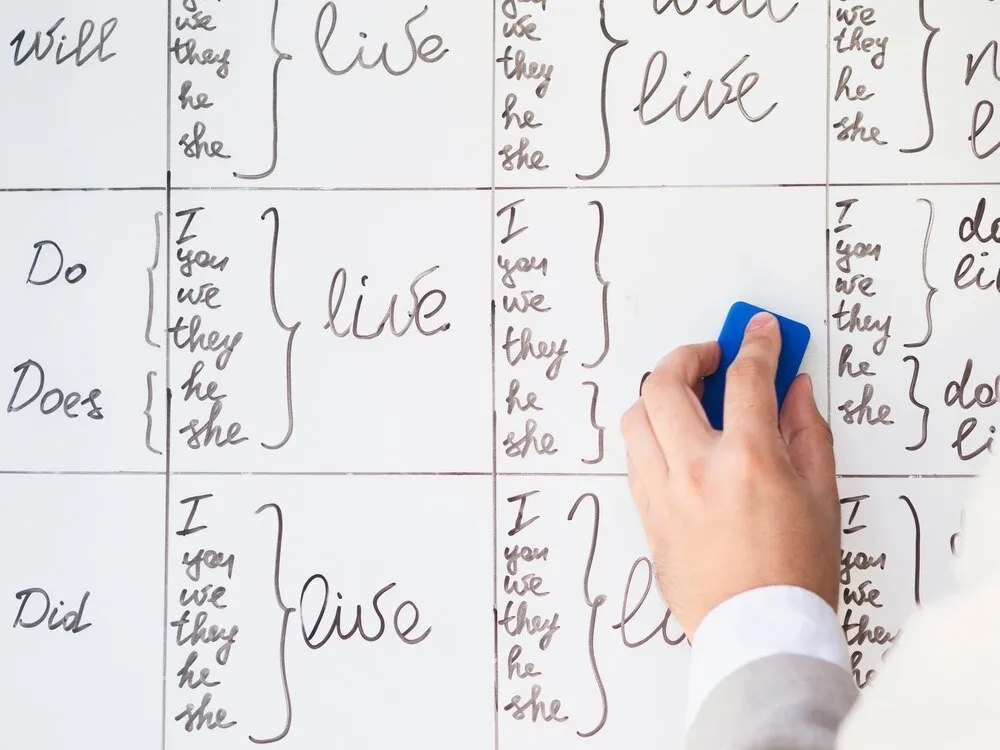 will
we
they
he
she
live
we
they
he
she
live
we
they
he
she
Do
Does
I
you
we
they
he
she
live
I
you
we
they
he
she
I
you
we
they
he
she
Did
I
you
we
they
he
she
live
I
you
we
they
he
she
I
you
we
they